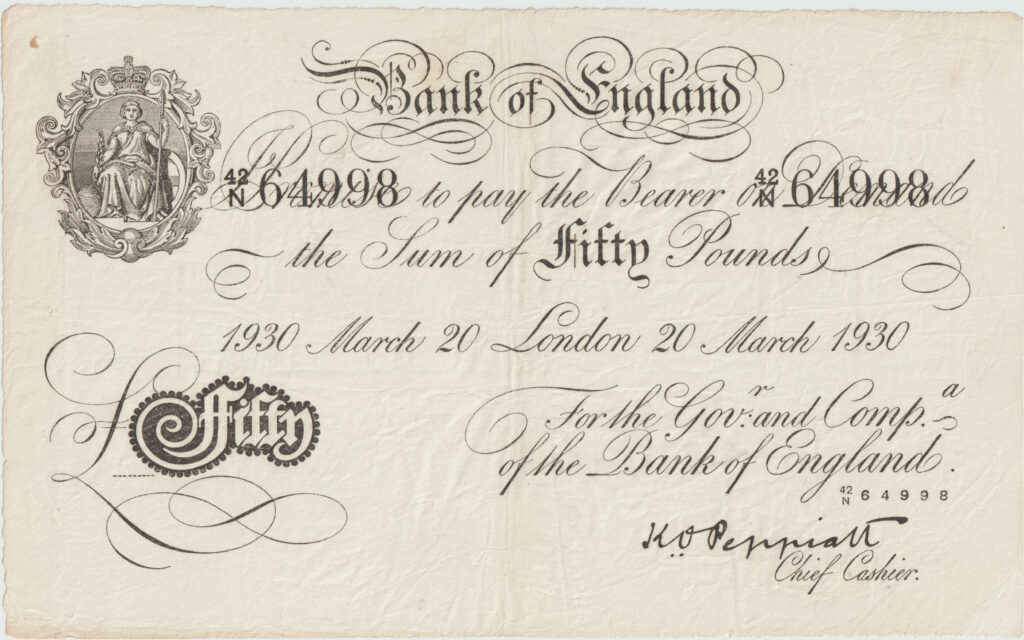 Bank of England
42
N 64998 42
N 64998
I Promise to pay the Bearer on Demand
the Sum of Fifty Pounds
1930 March 20 London 20 March 1930
For the Gov.r and Comp.a
of the Bank of England.
£ Fifty
42
N 64998
K.O. Peppiatt
Chief Cashier.